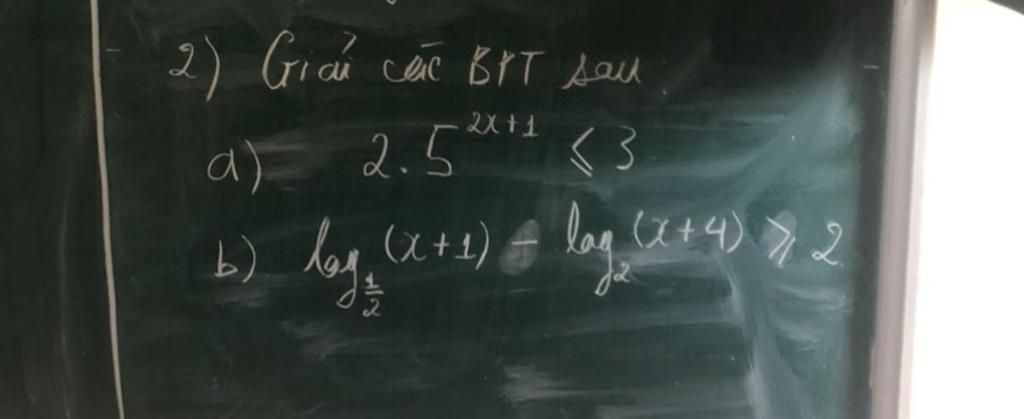 2) Giải các BPT sau
a) 2.5^{2x+1} ⩽ 3
b) log_{\frac{1}{2}} (x+1) - log_2 (x+4) ⩾ 2